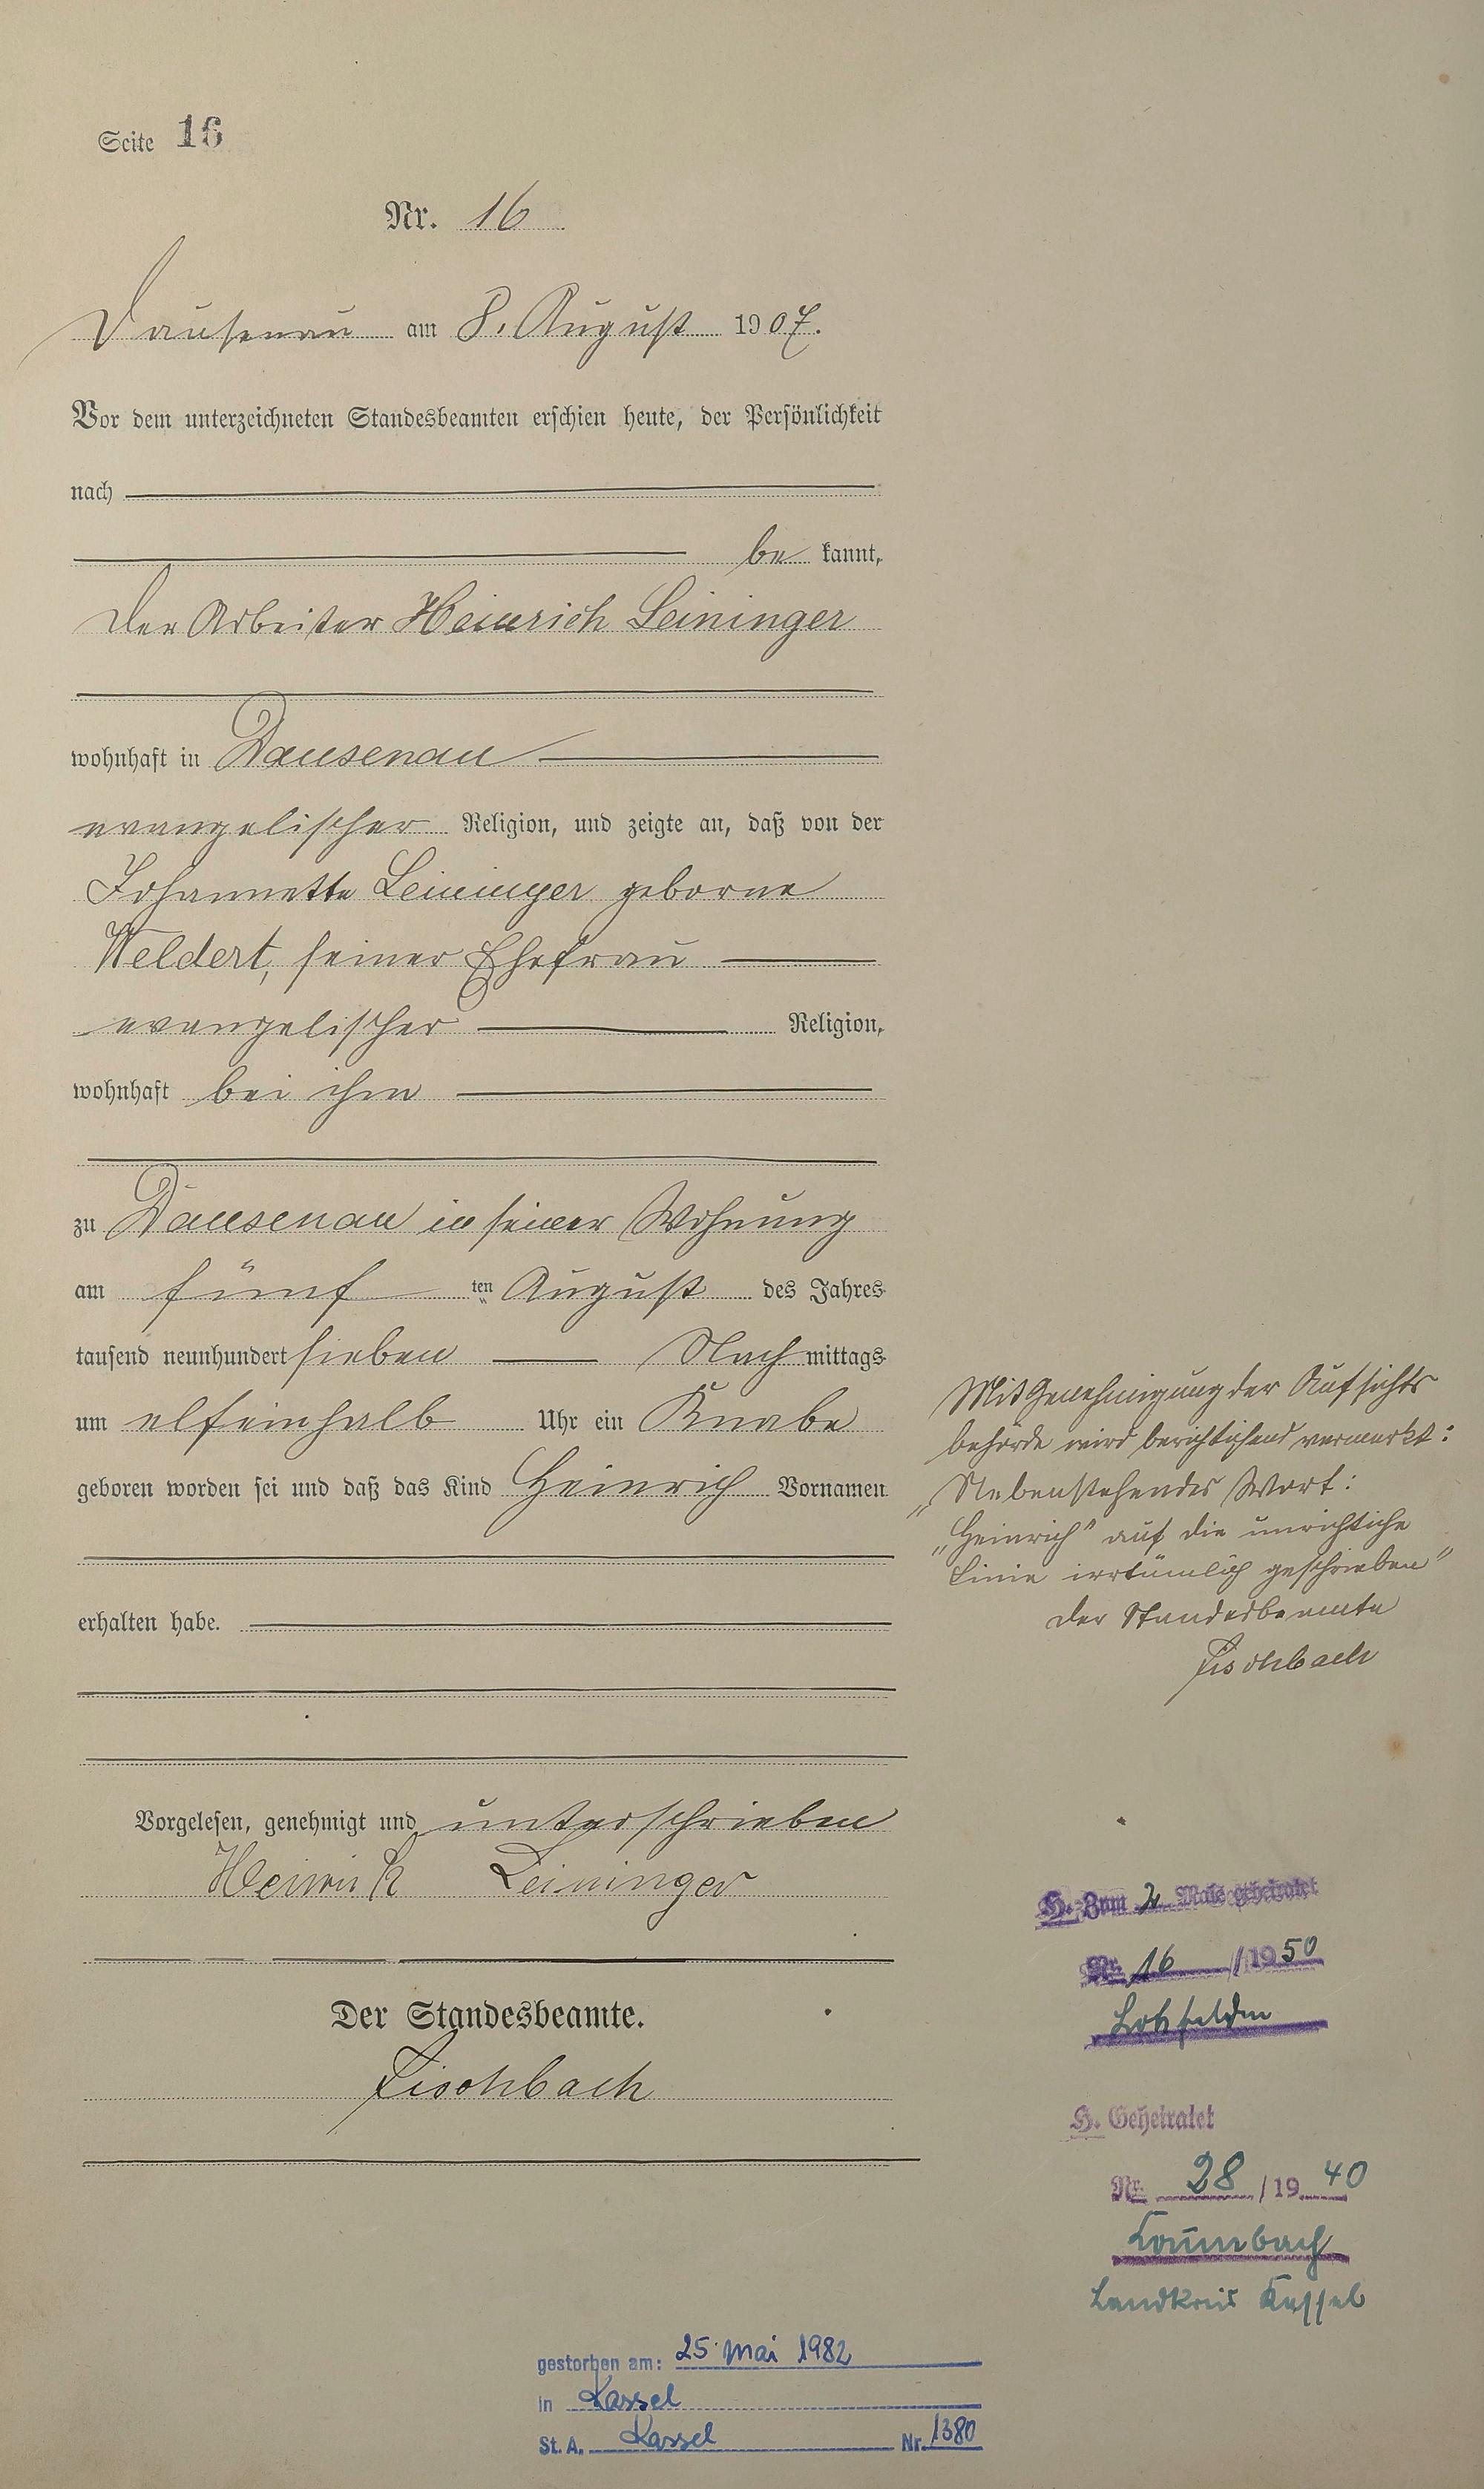 Seite 16
Nr. 16
Dausenau am 8. August 1907.
Vor dem unterzeichneten Standesbeamten erschien heute, der Persönlichkeit
nach
be kannt,
der Arbeiter Heinrich Leininger
wohnhaft in Dausenau
evangelischer Religion, und zeigte an, daß von der
Johannette Leininger geborne
Weldert, seiner Ehefrau
evangelischer Religion,
wohnhaft bei ihm
zu Dausenau in seiner Wohnung
am fünf ten August des Jahres
tausend neunhundert sieben Nach mittags
um elfeinhalb Uhr ein Knabe
geboren worden sei und daß das Kind Heinrich Vornamen
erhalten habe.
Vorgelesen, genehmigt und unterschrieben
Heinrich Leininger
Der Standesbeamte.
Fischbach
Mit Genehmigung der Aufsichts
behörde wird berichtigend vermerkt:
„Nebenstehendes Wort:
„Heinrich" auf die unrichtige
Linie irrtümlich geschrieben"
Der Standesbeamte
Fischbach
H. Zum 2 Male geheiratet
Nr. 16 /1950
Lohfelden
H. Geheiratet
Nr. 28 /1940
Landkreis Kassel
gestorben am: 25. Mai 1982
in Kassel
St. A. Kassel Nr. 1380